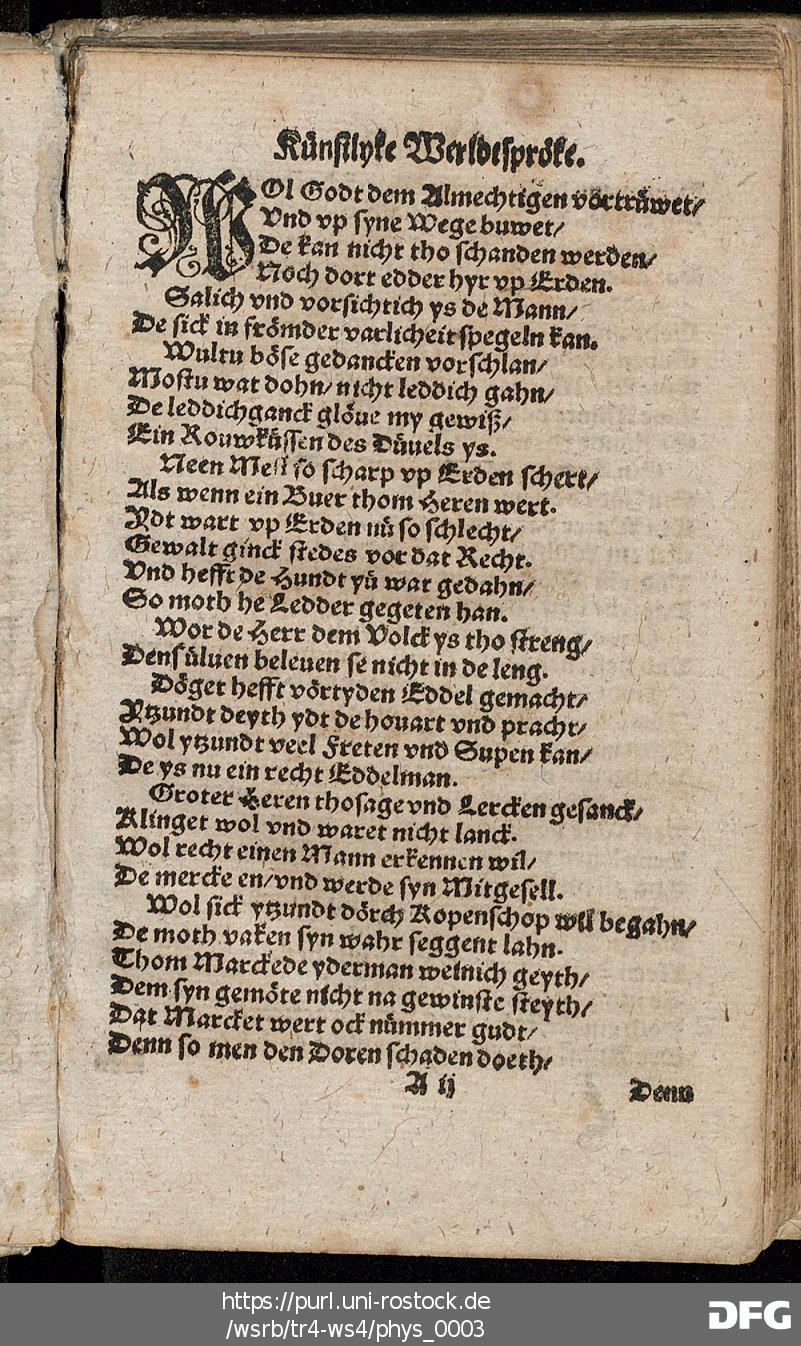 Künstlyke Werldtspröke.
WOl Godt dem Almechtigen vörtrüwet/
Vnd vp syne Wege buwet/
De kan nicht tho schanden werden/
Noch dort edder hyr vp Erden.
Salich vnd vorsichtich ys de Mann/
De sick in frömder varlicheit spegeln kan.
Wultu böse gedancken vorschlan/
Mostu wat dohn/ nicht leddich gahn/
De leddichganck glöue my gewiß/
Ein Rouwküssen des Düuels ys.
Neen Mest so scharp vp Erden schert/
Als wenn ein Buer thom Heren wert.
Ydt wart vp Erden nü so schlecht/
Gewalt ginck stedes vor dat Recht.
Vnd hefft de Hundt yü wat gedahn/
So moth he Ledder gegeten han.
Wor de Herr dem Volck ys tho streng/
Densüluen beleuen se nicht in de leng.
Döget hefft vörtyden Eddel gemacht/
Ytzundt deyth ydt de houart vnd pracht/
Wol ytzundt veel Freten vnd Supen kan/
De ys nu ein recht Eddelman.
Groter Heren thosage vnd Lercken gesanck/
Klinget wol vnd waret nicht lanck.
Wol recht einen Mann erkennen wil/
De mercke en/ vnd werde syn Mitgesell.
Wol sick ytzundt dörch Kopenschop wil begahn/
De moth vaken syn wahr seggent lahn.
Thom Marckede yderman weinich geyth/
Dem syn gemöte nicht na gewinste steyth/
Dat Marcket wert ock nümmer gudt/
Denn so men den Doren schaden doeth/
A ij
Denn
https://purl.uni-rostock.de
/wsrb/tr4-ws4/phys_0003
DFG